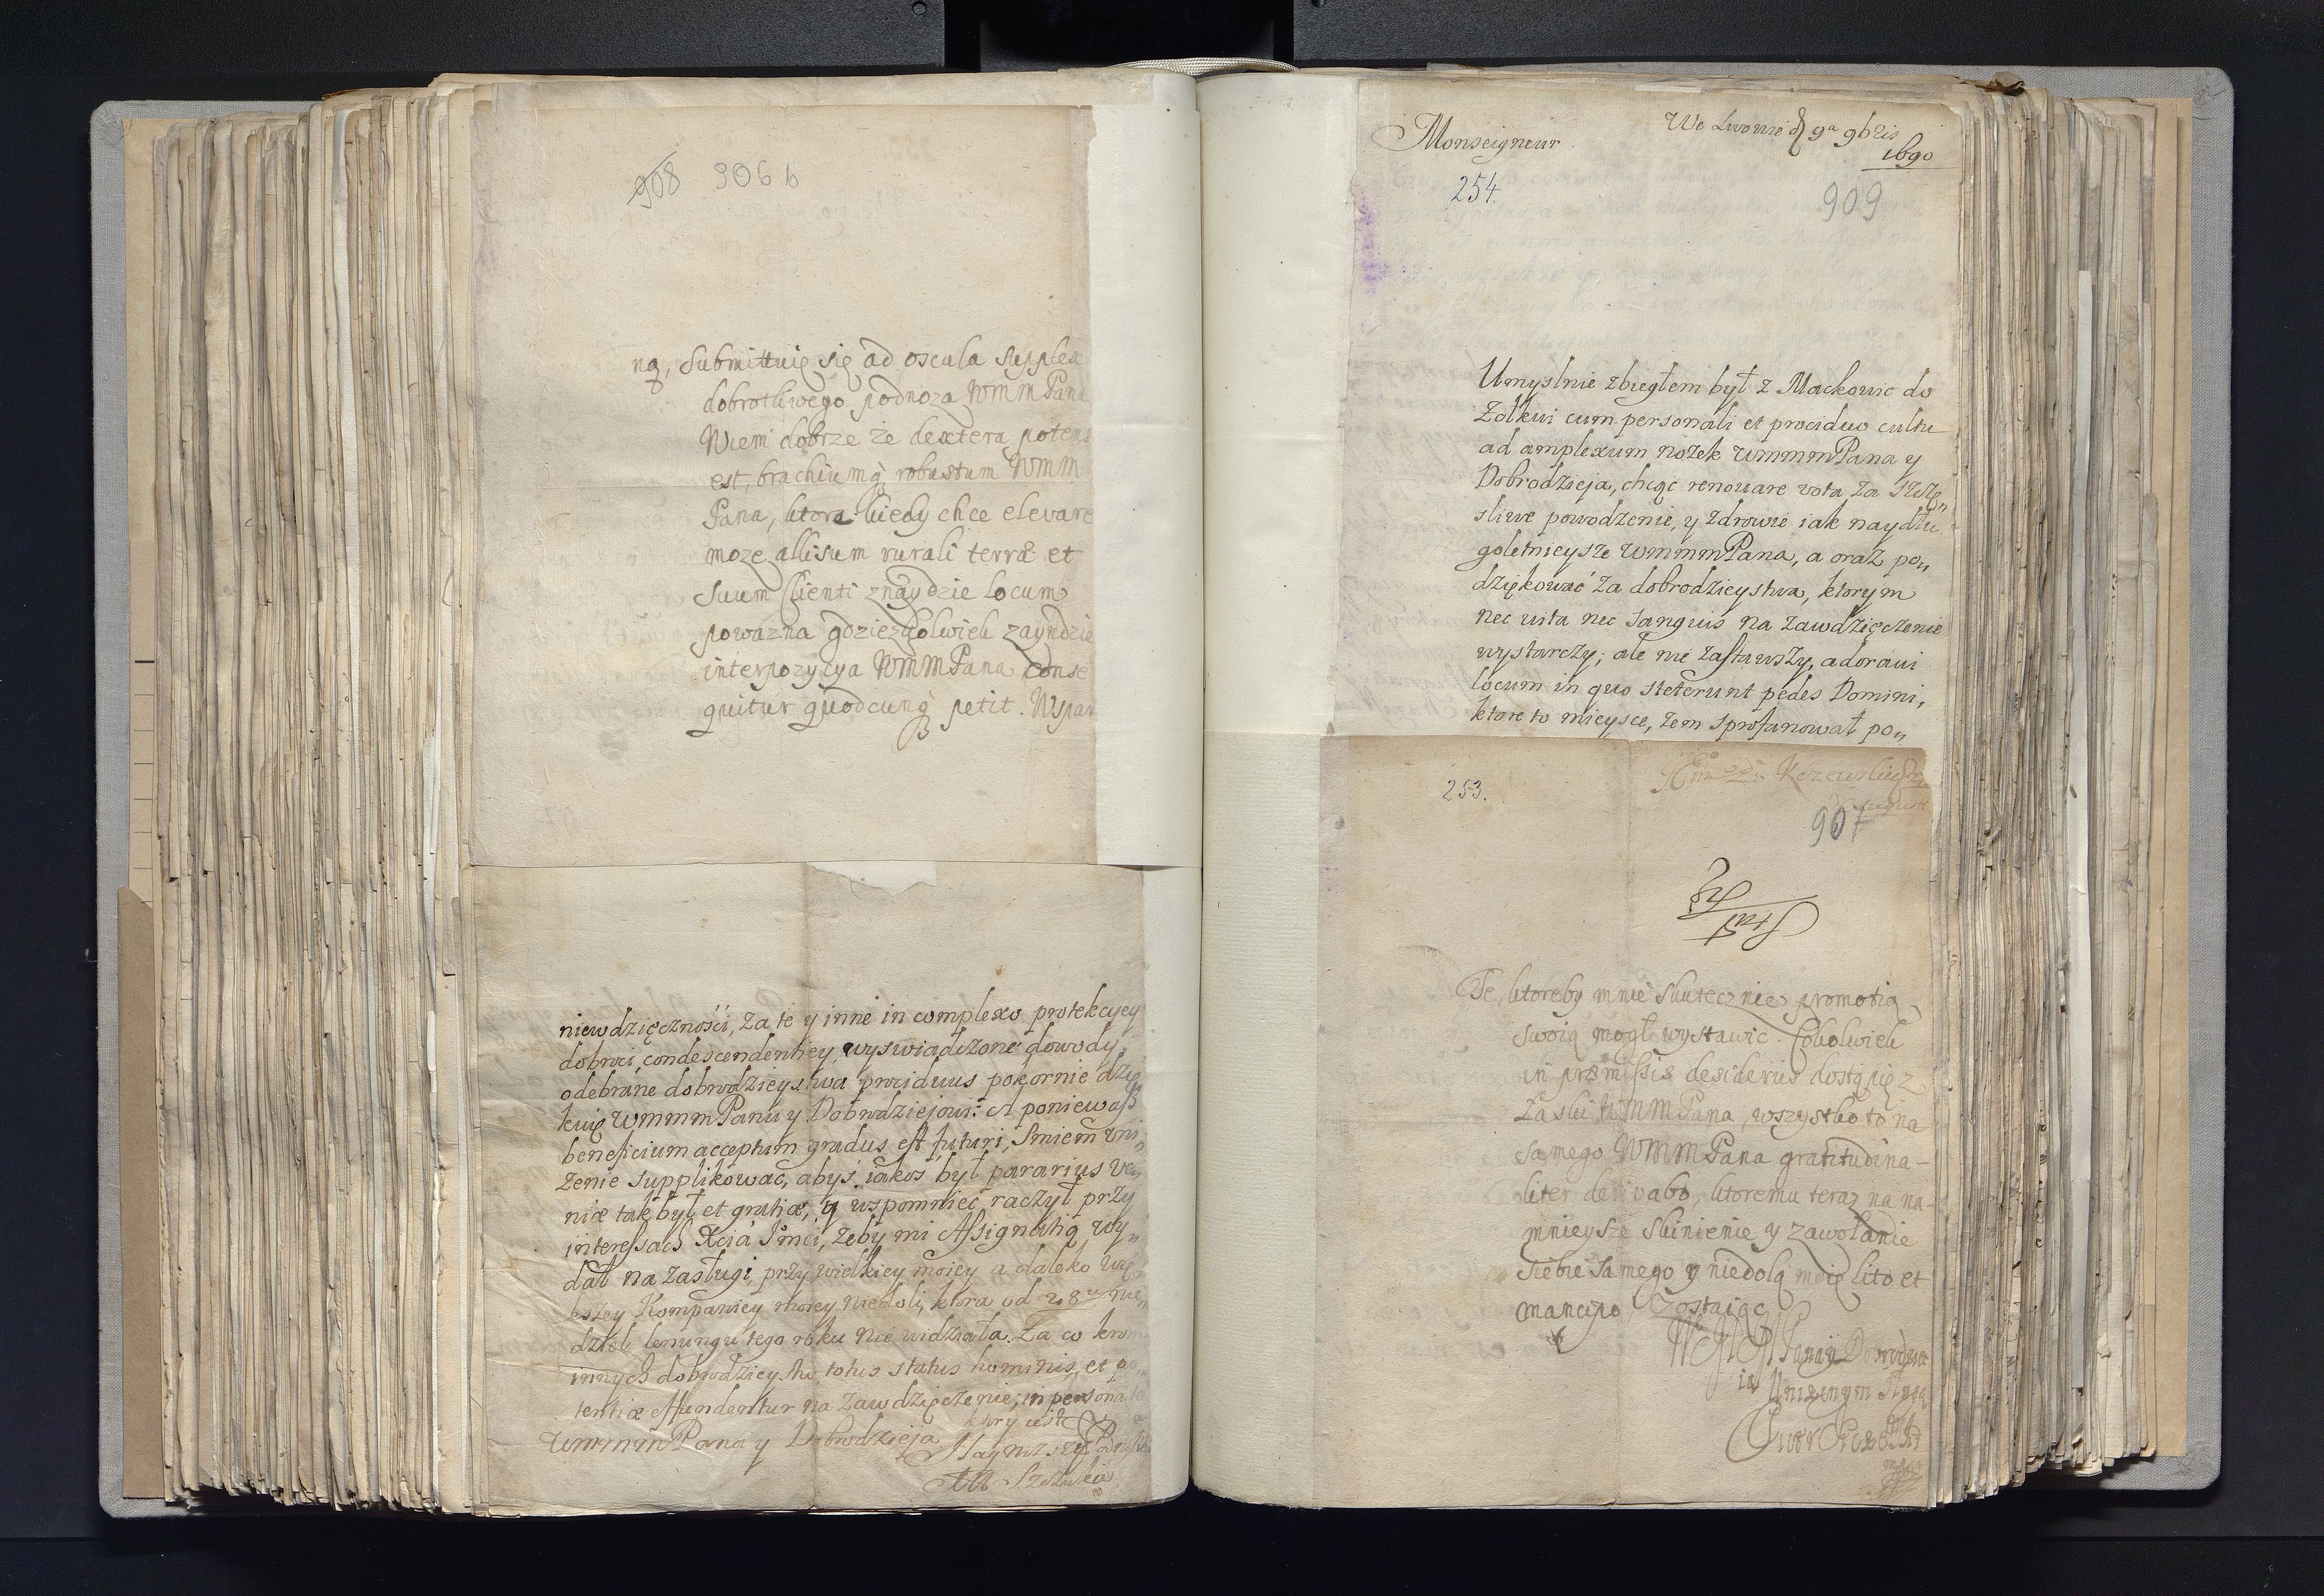 908 906 b
ną, Submittuię się ad oscula supplex
dobrotliwego podnoza WMM Pana
Wiem dobrze że dextera potens
est, brachiumq robustum WMM
Pana, ktora kiedy chce elevare
moze allisum rurali terræ et
suum Clienti znaydzie locum
powazna gdziezkolwiek zayndzie
interpozycya WMM Pana conse
quitur quodcunq petit. Wspar
niewdzięczności, za te y inne in complexo protekcyey
dobroci, condescendentiey wyswiadczone dowody,
odebrane dobrodzieystwa prociduus pokornie dzię
kuię WmmmPanu y Dobrodziejowi: A poniewasz
beneficium acceptum gradus est futuri, Smiem vni„
zenie supplikować, abyś iakoś był pararius ve„
niæ tak był et gratiæ, y wspomnieć raczył przy
interessach Xcia Jmci, żeby mi Assignatią wy„
dał na zasługi, przy wielkiey moiey a daleko wię„
kszey Kompaniey moiey niedoli, ktora od 28 nie„
dziel lenungu tego roku nie widziała. Za co krom
innych dobrodzieystw, totus status hominis, et po„
tentiæ effundentur na zawdzięczenie, in persona
ktory iest
WmmmPana y Dobrodzieja
Naynizszy
Monseigneur
We Lwowie d 9a 9bris
1690
254.
909
Umyslnie zbiegłem był z Mackowic do
Zołkwi cum personali et prociduo cultu
ad amplexum nożek WmmmPana y
Dobrodzieja, chcąc renovare vota za szczę„
sliwe powodzenie, y zdrowie iak naydłu
goletnieysze WmmmPana, a oraz po„
dziękować za dobrodzieystwa, ktorym
nec vita nec sanguis na zawdzięczenie
wystarczy; ale nie zastawszy, adoravi
locum in quo steterunt pedes Domini,
ktore to mieysce, żem sprofanował po„
253.
907
Te, ktoreby mnie skutecznie promotią
swoią mogł wystawic. Cokolwiek
in præmissis desideriis dostąpię z
Łaski WMM Pana, wszystko to na
samego WMM Pana gratitudina-
liter derivabo, ktoremu teraz na na-
mnieysze skinienie y zawołanie
siebie samego y niedolą moię lito et
mancipo, Zostaiąc
Pana y Dobrodzieia
Unizonym Sługą